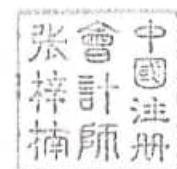 中國注册
會計師
张梓楠